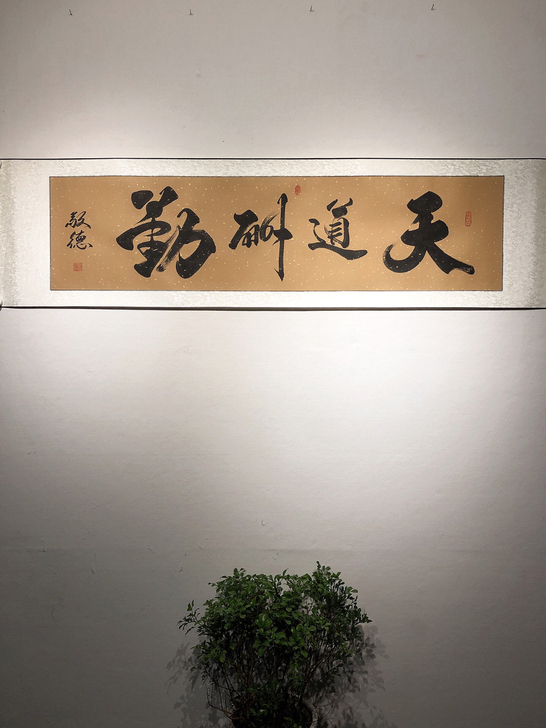 天道酬勤
敬德